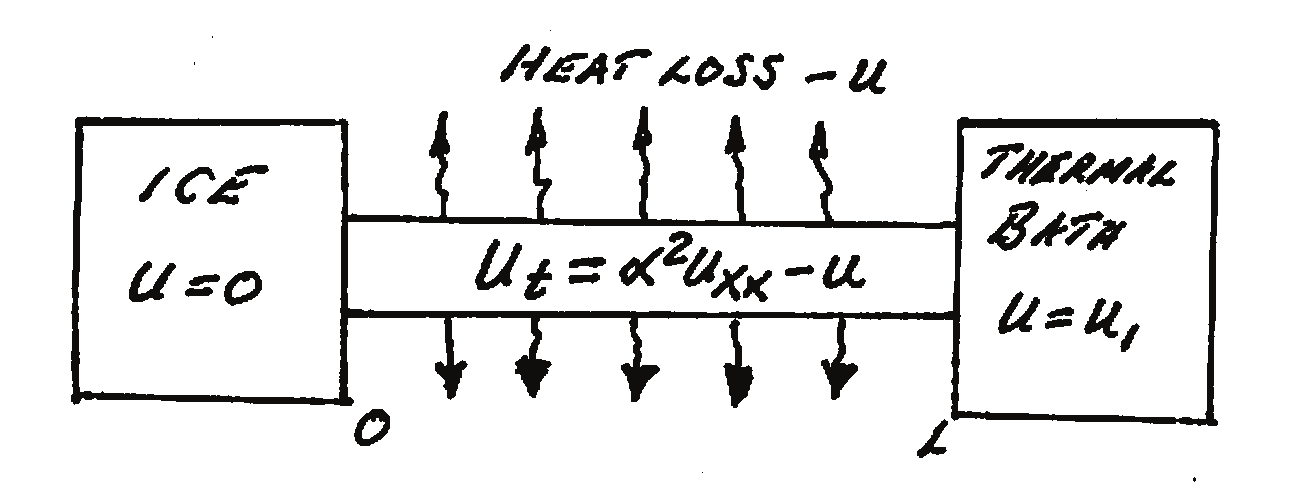 HEAT LOSS - u
ICE
u = 0
u_t = α²u_xx - u
THERMAL
BATH
u = u₁
0
L